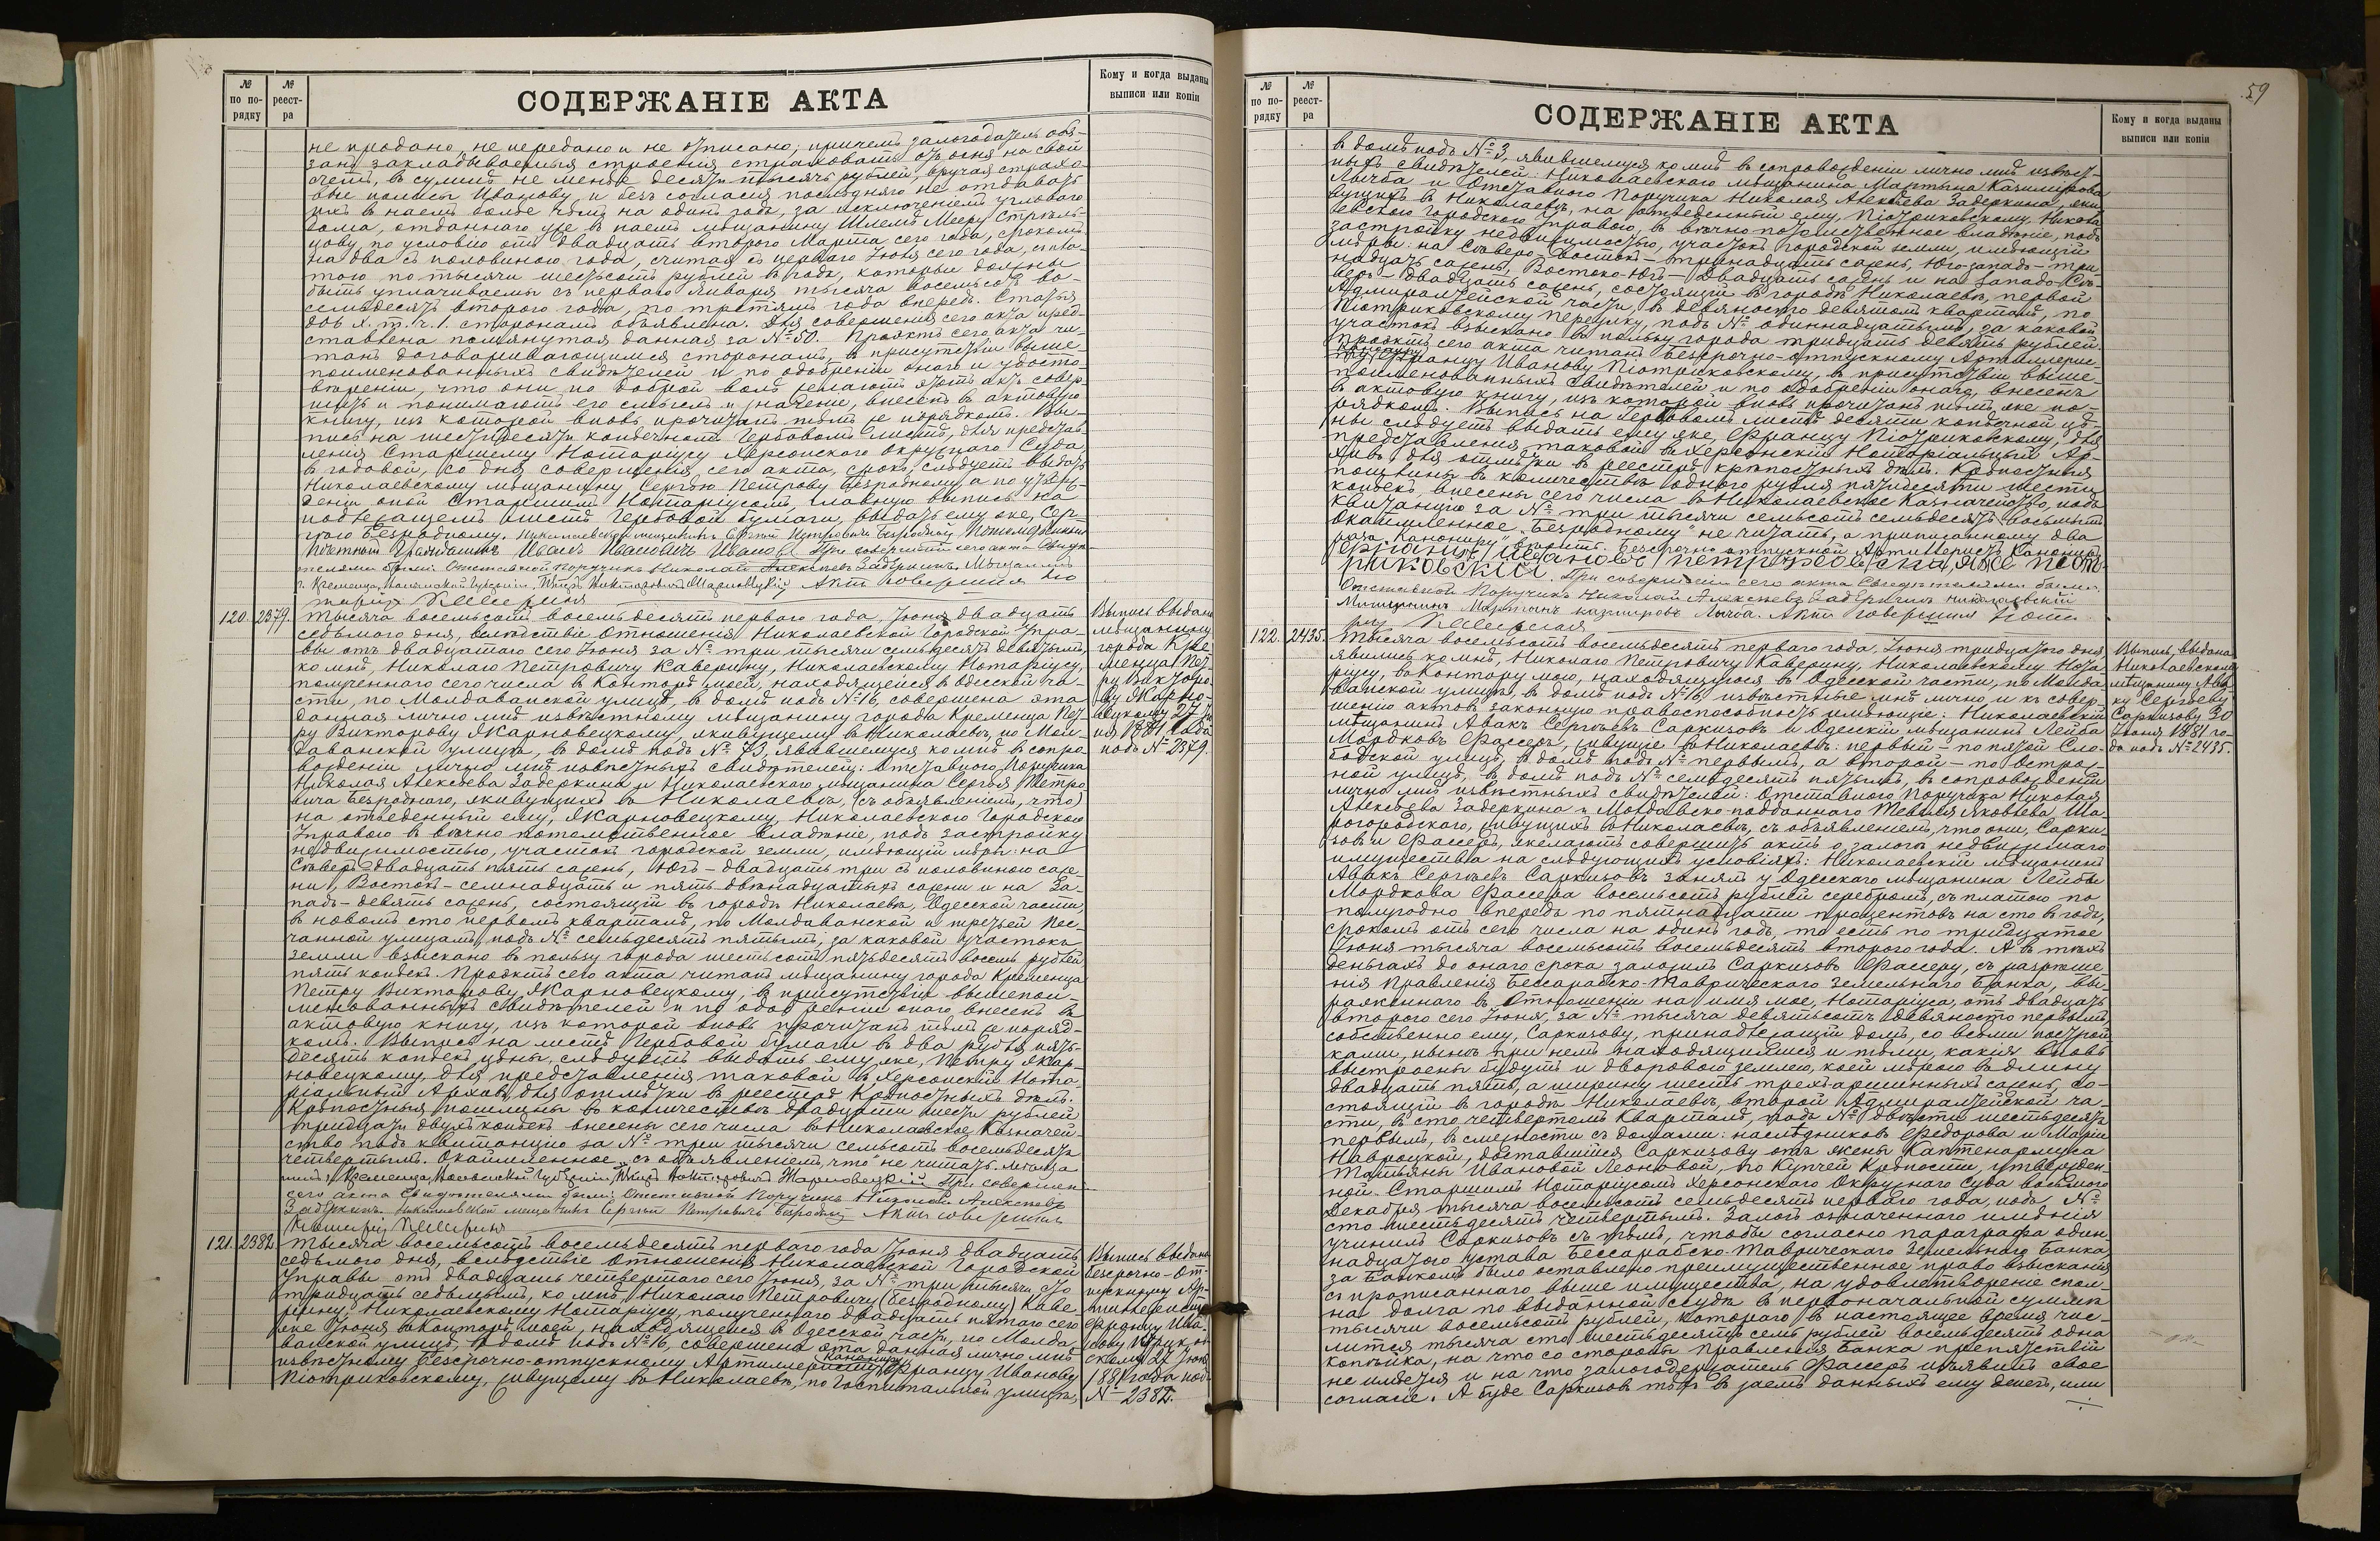 № по по-рядку
№ реест-ра
СОДЕРЖАНІЕ АКТА
Кому и когда выданы выписи или копіи
не продано, не передано и не описано; причемъ залогодатель обя-
занъ закладываемыя строенія страховать отъ огня на свой
счетъ, въ суммѣ не менѣе десяти тысячъ рублей, вручая страхо-
вые полисы Иванову и безъ согласія послѣдняго не отдавать
ихъ въ наемъ болѣе чѣмъ на одинъ годъ, за исключеніемъ угловаго
дома, отданнаго уже въ наемъ мѣщанину Шлемѣ Мееру
цову, по условію отъ двадцать втораго Марта сего года, срокомъ
на два съ половиною года, считая съ перваго Іюня сего года, съ пла-
тою по тысячи шестьсотъ рублей въ годъ, которые должны
быть уплачиваемы съ перваго Января тысяча восемьсотъ во-
семьдесятъ втораго года, по третямъ года впередъ. Статья
х. т. ч. 1. сторонамъ объявлена. Для совершенія сего акта пред-
ставлена помянутая данная за № 50. Проэктъ сего акта чи-
танъ договаривающимся сторонамъ, въ присутствіи выше-
поименованныхъ свидѣтелей и по одобреніи онаго и удосто-
вѣреніи, что они по доброй волѣ желаютъ этотъ актъ совер-
шить и понимаютъ его смыслъ и значеніе, внесенъ въ актовую
книгу, изъ которой вновь прочитанъ тѣмъ же порядкомъ. Вы-
пись на шестидесяти копѣечномъ Гербовомъ листѣ, для представ-
ленія Старшему Нотаріусу Херсонскаго Окружнаго Суда
въ годовой, со дня совершенія сего акта, срокъ, слѣдуетъ выдать
Николаевскому мѣщанину Сергѣю Петрову Безродному, а по утвер-
жденіи оной Старшимъ Нотаріусомъ, главную выпись на
подлежащемъ листѣ Гербовой бумаги, выдать ему же, Сер-
гѣю Безродному. Николаевскій мещанинъ Сергей Петровичъ Безродный Потомственный
Почетный Гражданинъ Иванъ Ивановичъ Ивановъ При совершеніи сего акта Свидѣ-
телями были: Отставной Поручикъ Николай Алексѣевъ Задеркинъ. Мещанинъ
г. Кременца, Волынской Губерніи, Петръ Викторовичъ Жарновецкій Актъ совершилъ Но
таріусъ Каверинъ
120.
2379.
Тысяча восемьсотъ восемьдесятъ перваго года, Іюня двадцать
седьмого дня, вслѣдствіе Отношенія Николаевской Городской Упра-
вы отъ двадцатаго сего Іюня за № три тысячи семьдесятъ девятымъ,
ко мнѣ, Николаю Петровичу Каверину, Николаевскому Нотаріусу,
полученнаго сего числа въ Конторѣ моей, находящейся въ Одесской ча-
сти, по Молдаванской улицѣ, въ домѣ подъ № 16, совершена эта
данная лично мнѣ извѣстному мѣщанину города Кременца Пет-
ру Викторову Жарновецкому, живущему въ Николаевѣ, по Мол-
даванской улицѣ, въ домѣ подъ № 73, явившемуся ко мнѣ въ сопро-
вожденіи лично мнѣ извѣстныхъ свидѣтелей: Отставного Поручика
Николая Алексѣева Задеркина и Николаевскаго мѣщанина Сергѣя Петро
вича Безроднаго, живущихъ въ Николаевѣ, (съ объявленіемъ, что)
на отведенный ему, Жарновецкому, Николаевскою Городскою
Управою въ вѣчно потомственное владѣніе, подъ застройку
недвижимостью, участокъ городской земли, имѣющій мѣры: на
Сѣверъ-двадцать пять сажень, Югъ-двадцать три съ половиною саже-
ни, Востокъ-семнадцать и пять двѣнадцатыхъ сажени и на За-
падъ-девять сажень, состоящій въ городѣ Николаевѣ, Одесской части,
въ новомъ сто первомъ кварталѣ, по Молдаванской и третьей Пес-
чанной улицамъ, подъ № семьдесятъ пятымъ, за каковой участокъ
земли взыскано въ пользу города шестьсотъ пятьдесятъ восемь рублей
пять копѣекъ. Проэктъ сего акта читанъ мѣщанину города Кременца
Петру Викторову Жарновецкому, въ присутствіи вышепои-
менованныхъ свидѣтелей и по одобреніи онаго, внесенъ въ
актовую книгу, изъ которой вновь прочитанъ тѣмъ же поряд-
комъ. Выпись на листѣ Гербовой бумаги въ два рубля пять-
десятъ копѣекъ цѣны, слѣдуетъ выдать ему же, Петру Жар-
новецкому, для представленія таковой въ Херсонскій Нота-
ріальный Архивъ, для отмѣтки въ реестрѣ Крѣпостныхъ дѣлъ.
Крѣпостныя пошлины въ количествѣ двадцати шести рублей
тридцати двухъ копѣекъ внесены сего числа въ Николаевское Казначей-
ство подъ квитанцію за № три тысячи семьсотъ восемьдесятъ
четвертымъ. Окаймленное „съ объявленіемъ, что" не читать. Меща
нинъ г. Кременца, Волынской Губерніи, Петръ Викторовичъ Жарновецкій При совершеніи
сего акта Свидѣтелями были: Отставной Поручикъ Николай Алексѣевъ
Задеркинъ. Николаевской мещанинъ Сергей Петровичъ Безродный Актъ совершилъ
Нотаріусъ Каверинъ
Выпись выдана
мѣщанину
города Кре-
менца Пет-
ру Викторо-
ву Жарно-
вецкому 27 Ію-
ня 1881 года
подъ № 2379.
121.
2382.
Тысяча восемьсотъ восемьдесятъ перваго года Іюня двадцать
седьмого дня, вслѣдствіе Отношенія Николаевской Городской
Управы отъ двадцать четвертаго сего Іюня, за № три тысячи сто
тридцать седьмымъ, ко мнѣ, Николаю Петровичу (Безродному) Каве
рину, Николаевскому Нотаріусу, полученнаго двадцать пятаго сего
же Іюня въ Конторѣ моей, находящейся въ Одесской части, по Молда-
ванской улицѣ, въ домѣ подъ № 16, совершена эта данная лично мнѣ
Канониру
извѣстному Безсрочно-отпускному Артиллеристу Францу Иванову
Піотриковскому, живущему въ Николаевѣ, по Госпитальной улицѣ,
Выпись выдана
безсрочно-От-
пускному Ар-
тиллеристу
Францу Ива-
нову
скому 27 Іюня
1881 года подъ
№ 2382.
59
№ по по-рядку
№ реест-ра
СОДЕРЖАНІЕ АКТА
Кому и когда выданы выписи или копіи
въ домѣ подъ № 3, явившемуся ко мнѣ въ сопровожденіи лично мнѣ извѣст-
ныхъ свидѣтелей: Николаевскаго мѣщанина Мартына Казимирова
Лычба и Отставного Поручика Николая Алексѣева Задеркина, жи-
вущихъ въ Николаевѣ, на отведенный ему, Піотриковскому, Никола
евскою Городскою Управою, въ вѣчно потомственное владѣніе, подъ
застройку недвижимостью, участокъ городской земли, имѣющій
мѣры: на Сѣверо-Востокъ-тринадцать сажень, Юго-западъ-три-
надцать сажень, Востоко-Югъ-двадцать сажень и на Западо-Сѣ-
веръ-двадцать сажень, состоящій въ городѣ Николаевѣ, первой
Адмиралтейской части, въ девяносто девятомъ кварталѣ, по
Піотриковскому переулку, подъ № одиннадцатымъ, за каковой
участокъ взыскано въ пользу города тридцать девять рублей.
Проэктъ сего акта читанъ безсрочно-отпускному Артиллерис-
Канониру
ту Францу Иванову Піотриковскому, въ присутствіи выше-
поименованныхъ свидѣтелей и по одобреніи онаго, внесенъ
въ актовую книгу, изъ которой вновь прочитанъ тѣмъ же по-
рядкомъ. Выпись на Гербовомъ листѣ десяти копѣечной цѣ-
ны слѣдуетъ выдать ему же, Францу Піотриковскому, для
представленія таковой въ Херсонскій Нотаріальный Ар-
хивъ для отмѣтки въ реестрѣ крѣпостныхъ дѣлъ. Крѣпостныя
пошлины въ количествѣ одного рубля пятидесяти шести
копѣекъ, внесены сего числа въ Николаевское Казначейство, подъ
квитанцію за № три тысячи семьсотъ семьдесятъ восьмымъ
Окаймленное „Безродному" не читать, а приписанному два
раза „Канониру" вѣрить. Безсрочно отпускной Артиллеристъ Канониръ
францъ ивановъ петровъ онже піот-
риковскій. При совершеніи сего акта Свидѣтелями были:
Отставной Поручикъ Николай Алексѣевъ Задеркинъ Николаевскій
Мѣщанинъ Мартынъ казимировъ Лычба. Актъ совершилъ Нота
ріусъ Каверинъ
122.
2435.
Тысяча восемьсотъ восемьдесятъ перваго года, Іюня тридцатаго дня,
явились ко мнѣ, Николаю Петровичу Каверину, Николаевскому Нота-
ріусу, въ Контору мою, находящуюся въ Одесской части, по Молда-
ванской улицѣ, въ домѣ подъ № 16, извѣстные мнѣ лично и къ совер-
шенію актовъ законную правоспособность имѣющіе: Николаевскій
мѣщанинъ Авакъ Сергѣевъ Саркизовъ и Одесскій мѣщанинъ Лейба
Мордковъ Фассеръ, живущіе въ Николаевѣ: первый-по пятой Сло-
бодской улицѣ, въ домѣ подъ № первымъ, а второй-по Остров-
ной улицѣ, въ домѣ подъ № семьдесятъ пятымъ, въ сопровожденіи
лично мнѣ извѣстныхъ свидѣтелей: Отставного Поручика Николая
Алексѣева Задеркина и Молдавско-подданнаго Тевеля Яковлева Ша-
рогородскаго, живущихъ въ Николаевѣ, съ объявленіемъ, что они, Сарки-
зовъ и Фассеръ, желаютъ совершить актъ о залогѣ недвижимаго
имущества на слѣдующихъ условіяхъ: Николаевскій мѣщанинъ
Авакъ Сергѣевъ Саркизовъ занялъ у Одесскаго мѣщанина Лейбы
Мордкова Фассера восемьсотъ рублей серебромъ, съ платою по
полугодно впередъ по пятнадцати процентовъ на сто въ годъ,
срокомъ отъ сего числа на одинъ годъ, то есть по тридцатое
Іюня тысяча восемьсотъ восемьдесятъ втораго года. А въ тѣхъ
деньгахъ до онаго срока заложилъ Саркизовъ Фассеру, съ разрѣше-
нія Правленія Бессарабско-Таврическаго Земельнаго Банка, вы-
раженнаго въ Отношеніи на имя мое, Нотаріуса, отъ двадцать
второго сего Іюня, за № тысяча девятьсотъ девяносто первымъ,
собственно ему, Саркизову, принадлежащій домъ, со всѣми построй-
ками, нынѣ при немъ находящимися и тѣми, какія вновь
выстроены будутъ и дворовою землею, коей мѣрою въ длину
двадцать пять, а ширину шесть трехъ-аршинныхъ сажень, со-
стоящій въ городѣ Николаевѣ, второй Адмиралтейской ча-
сти, въ сто четвертомъ кварталѣ, подъ № двѣсти шестьдесятъ
первымъ, въ смежности съ домами: наслѣдниковъ Федорова и Маріи
Навроцкой, доставшійся Саркизову отъ жены Каптенармуса
Татьяны Ивановой Леоновой, по Купчей Крѣпости, утвержден-
ной Старшимъ Нотаріусомъ Херсонскаго Окружнаго Суда
Декабря тысяча восемьсотъ семьдесятъ перваго года, подъ №
сто шестьдесятъ четвертымъ. Залогъ означеннаго имѣнія
учинилъ Саркизовъ съ тѣмъ, чтобы согласно параграфа один-
надцатаго Устава Бессарабско-Таврическаго Земельнаго Банка
за Банкомъ было оставлено преимущественное право взысканія
съ прописаннаго выше имущества, на удовлетвореніе спол-
на долга по выданной ссудѣ въ первоначальной суммѣ
тысячи восемьсотъ рублей, котораго въ настоящее время чис-
лится тысяча сто шестьдесятъ семь рублей восемьдесятъ одна
копѣйка, на что со стороны Правленія Банка препятствій
не имѣется и на что залогодержатель Фассеръ изъявилъ свое
согласіе. А буде Саркизовъ тѣхъ въ заемъ данныхъ ему денегъ, или
Выпись выдана
Николаевскому
мѣщанину Ава-
ку Сергѣеву
Саркизову 30
Іюня 1881 го-
да подъ № 2435.